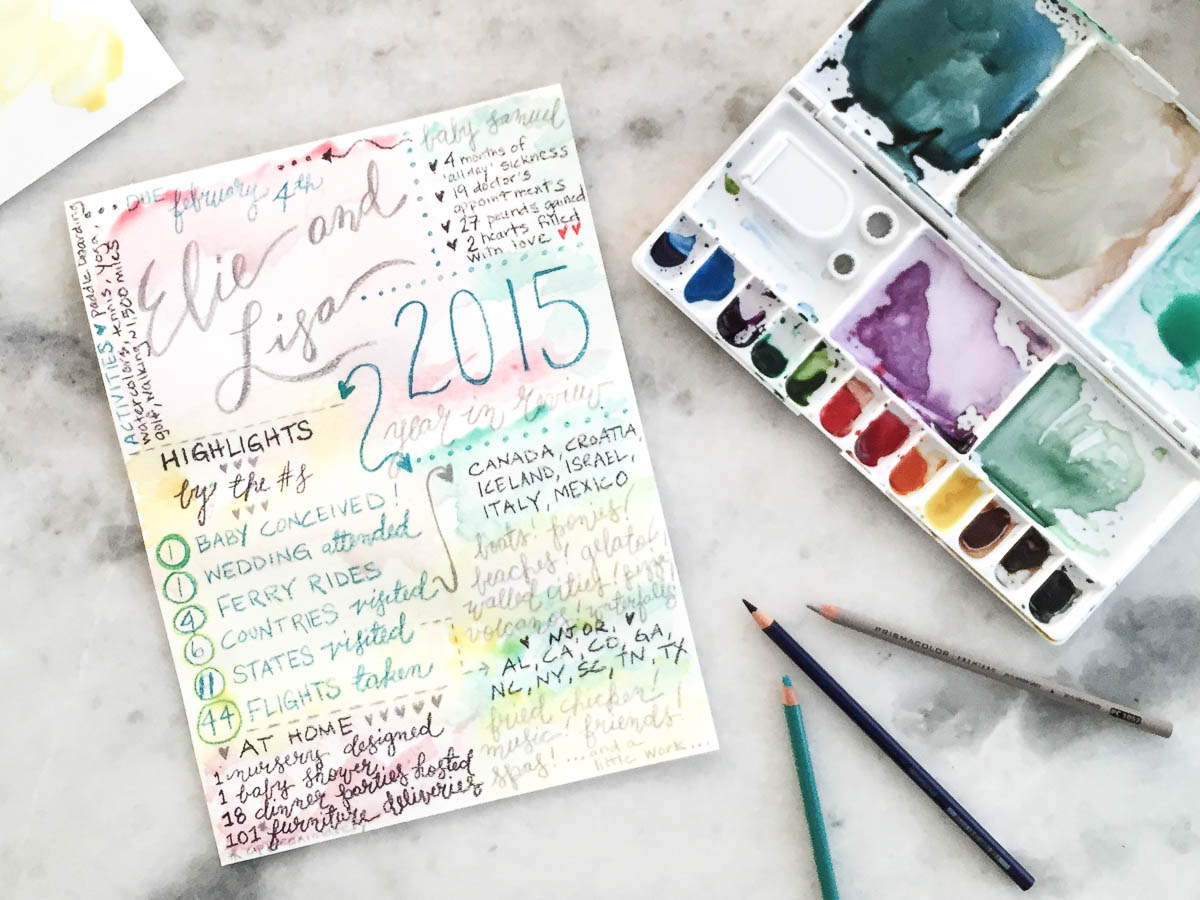 DUE february 4th
Elie and
Lisa
baby samuel
♥ 4 months of
'all day' sickness
♥ 19 doctor's
appointments
♥ 27 pounds gained
♥ 2 hearts filled
with love ♥♥
ACTIVITIES ♥ paddle boarding,
watercolors, tennis, yoga,
golf, walking ~1,500 miles
2015
year in review
HIGHLIGHTS
by the #s
1 BABY CONCEIVED!
1 WEDDING attended
4 FERRY RIDES
6 COUNTRIES visited
11 STATES visited
44 FLIGHTS taken
CANADA, CROATIA,
ICELAND, ISRAEL,
ITALY, MEXICO
boats! ponies!
beaches! gelato!
walled cities!
volcanos! waterfalls
♥ NJ, OR, ♥
AL, CA, CO, GA,
NC, NY, SC, TN, TX
fried chicken!
music! friends!
spas! ... and a
little work...
♥ AT HOME ♥♥♥♥♥
1 nursery designed
1 baby shower
18 dinner parties hosted
101* furniture deliveries
PRISMACOLOR PREMIER
PC 1087